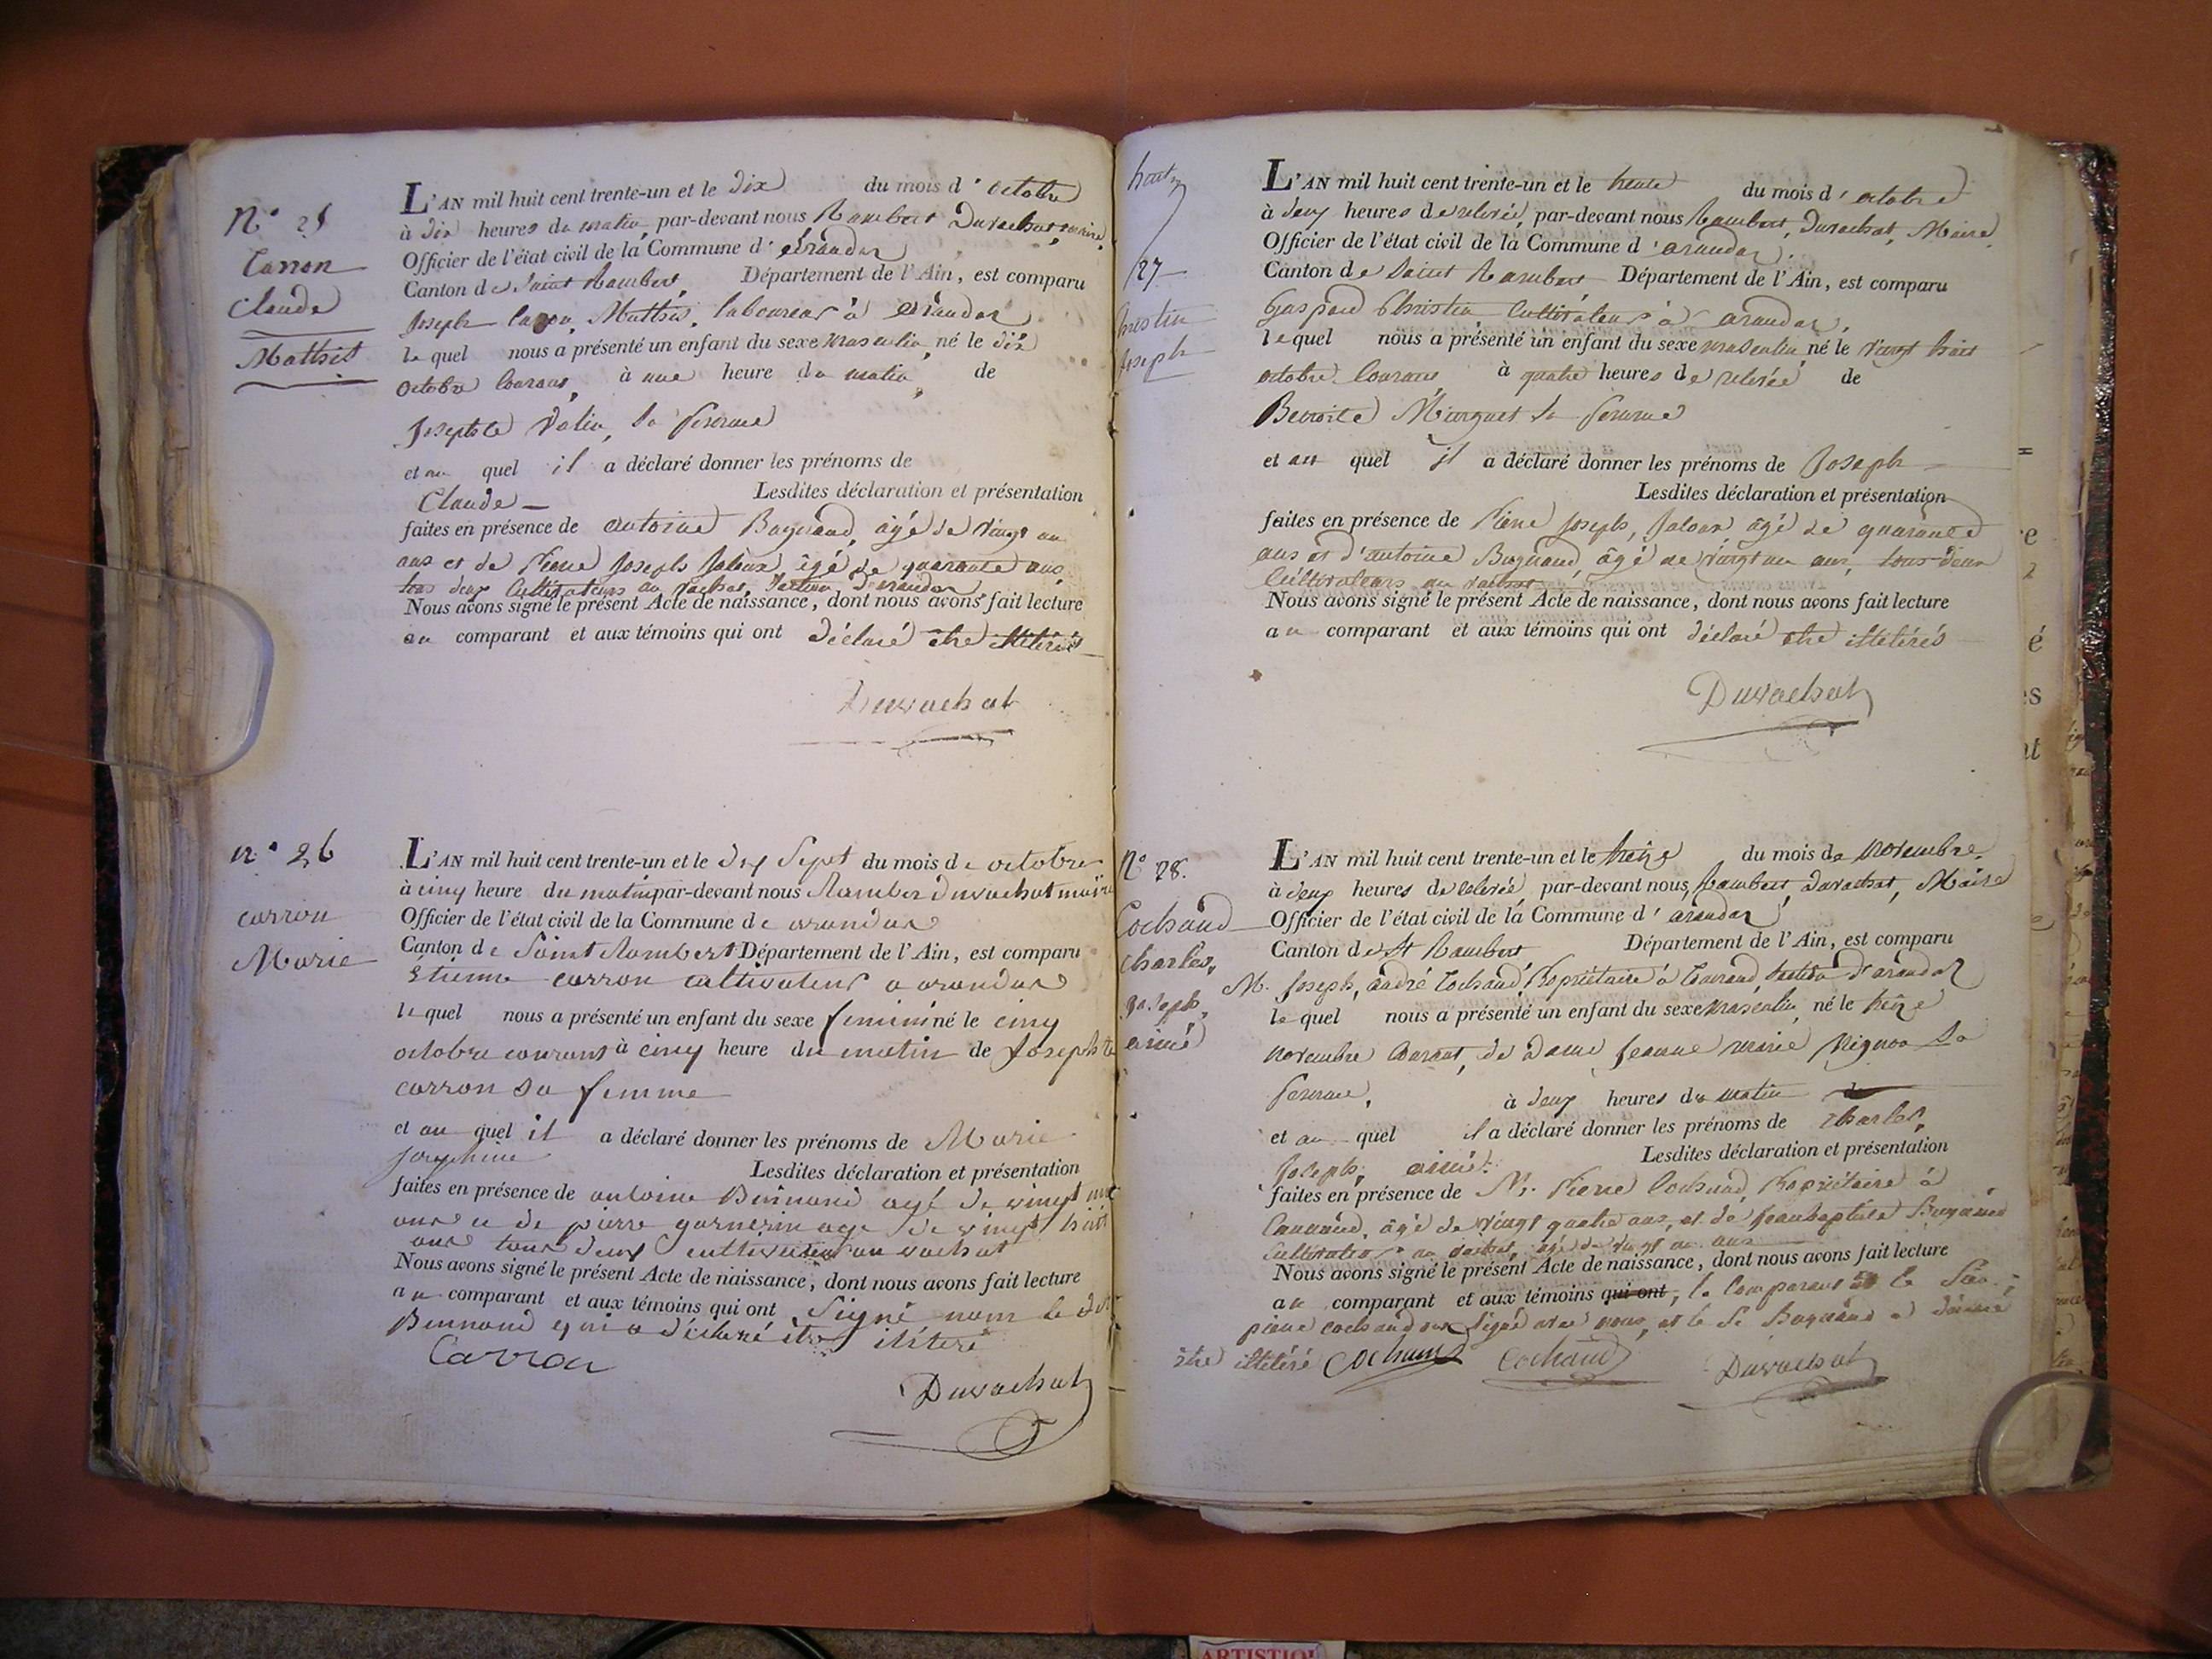 N° 25
Carron
Claude
Mathis
L'AN mil huit cent trente-un et le dix du mois d'octobre
à dix heures du matin, par-devant nous Rambert Duvachat, maire,
Officier de l'état civil de la Commune d'arandas
Canton de Saint Rambert, Département de l'Ain, est comparu
Joseph Caron, Mathis, laboureur à arandas
lequel nous a présenté un enfant du sexe masculin, né le dix
octobre courant, à une heure du matin, de
Josephte Valin, sa femme
et au quel il a déclaré donner les prénoms de
Claude — Lesdites déclaration et présentation
faites en présence de antoine Bugnand, âgé de vingt un
ans et de Pierre Joseph Jaloux, âgé de quarante ans,
tous deux Cultivateurs au vachat, section d'arandas
Nous avons signé le présent Acte de naissance, dont nous avons fait lecture
au comparant et aux témoins qui ont déclaré être illitérés
Duvachat
n° 26
carron
Marie
L'AN mil huit cent trente-un et le dix Sept du mois de octobre
à cinq heure du matin par-devant nous Ramber duvachat maire
Officier de l'état civil de la Commune de arandas
Canton de Saint Rambert Département de l'Ain, est comparu
Etienne carron cultivateur a arandas
lequel nous a présenté un enfant du sexe feminin né le cinq
octobre courant à cinq heure du matin de Josephte
carron sa femme
et au quel il a déclaré donner les prénoms de Marie
Josephine Lesdites déclaration et présentation
faites en présence de antoine Binnand agé de vingt une
ans e de pierre garnerin age de vingt huit
ans tous deux cultivateur au vachat
Nous avons signé le présent Acte de naissance, dont nous avons fait lecture
au comparant et aux témoins qui ont Signé nom le dit
Binnand qui a déclaré être ilitéré
Carron
Duvachat
27
christin
Joseph
L'AN mil huit cent trente-un et le trente du mois d'octobre
à deux heures de relevée, par-devant nous Rambert, Duvachat, Maire,
Officier de l'état civil de la Commune d'arandas,
Canton de Saint Rambert Département de l'Ain, est comparu
Gaspard Christin, Cultivateur à arandas,
lequel nous a présenté un enfant du sexe masculin né le vingt huit
octobre courant, à quatre heures de relevée de
Benoite Marguet sa femme
et au quel il a déclaré donner les prénoms de Joseph —
Lesdites déclaration et présentation
faites en présence de Pierre Joseph, Jaloux âgé de quarante
ans et d'antoine Bugnand, âgé de vingt un ans, tous deux
Cultivateurs au vachat
Nous avons signé le présent Acte de naissance, dont nous avons fait lecture
au comparant et aux témoins qui ont déclaré être illitérés
Duvachat
N° 28.
Cochand
charles,
joseph,
aimé
L'AN mil huit cent trente-un et le treize du mois de novembre,
à deux heures de relevée, par-devant nous, Rambert, Duvachat, Maire
Officier de l'état civil de la Commune d'arandas,
Canton de St Rambert Département de l'Ain, est comparu
M. Joseph, andré Cochand, Propriétaire à section d'arandas
lequel nous a présenté un enfant du sexe masculin, né le treize
novembre courant, de dame Jeanne marie Mignon Sa
femme, à deux heures du matin
et au quel il a déclaré donner les prénoms de charles,
Joseph, aimé. Lesdites déclaration et présentation
faites en présence de Mr. Pierre Cochand, Propriétaire à
âgé de vingt quatre ans, et de Jeanbaptiste Bugnand
Cultivateur au vachat, agé de vingt un ans
Nous avons signé le présent Acte de naissance, dont nous avons fait lecture
au comparant et aux témoins qui ont, le Comparant et le Sieur
pierre cochand ont Signé avec nous, et le Sr Bugnand a déclaré
être illitéré Cochand Cochand Duvachat
ARTISTIQU